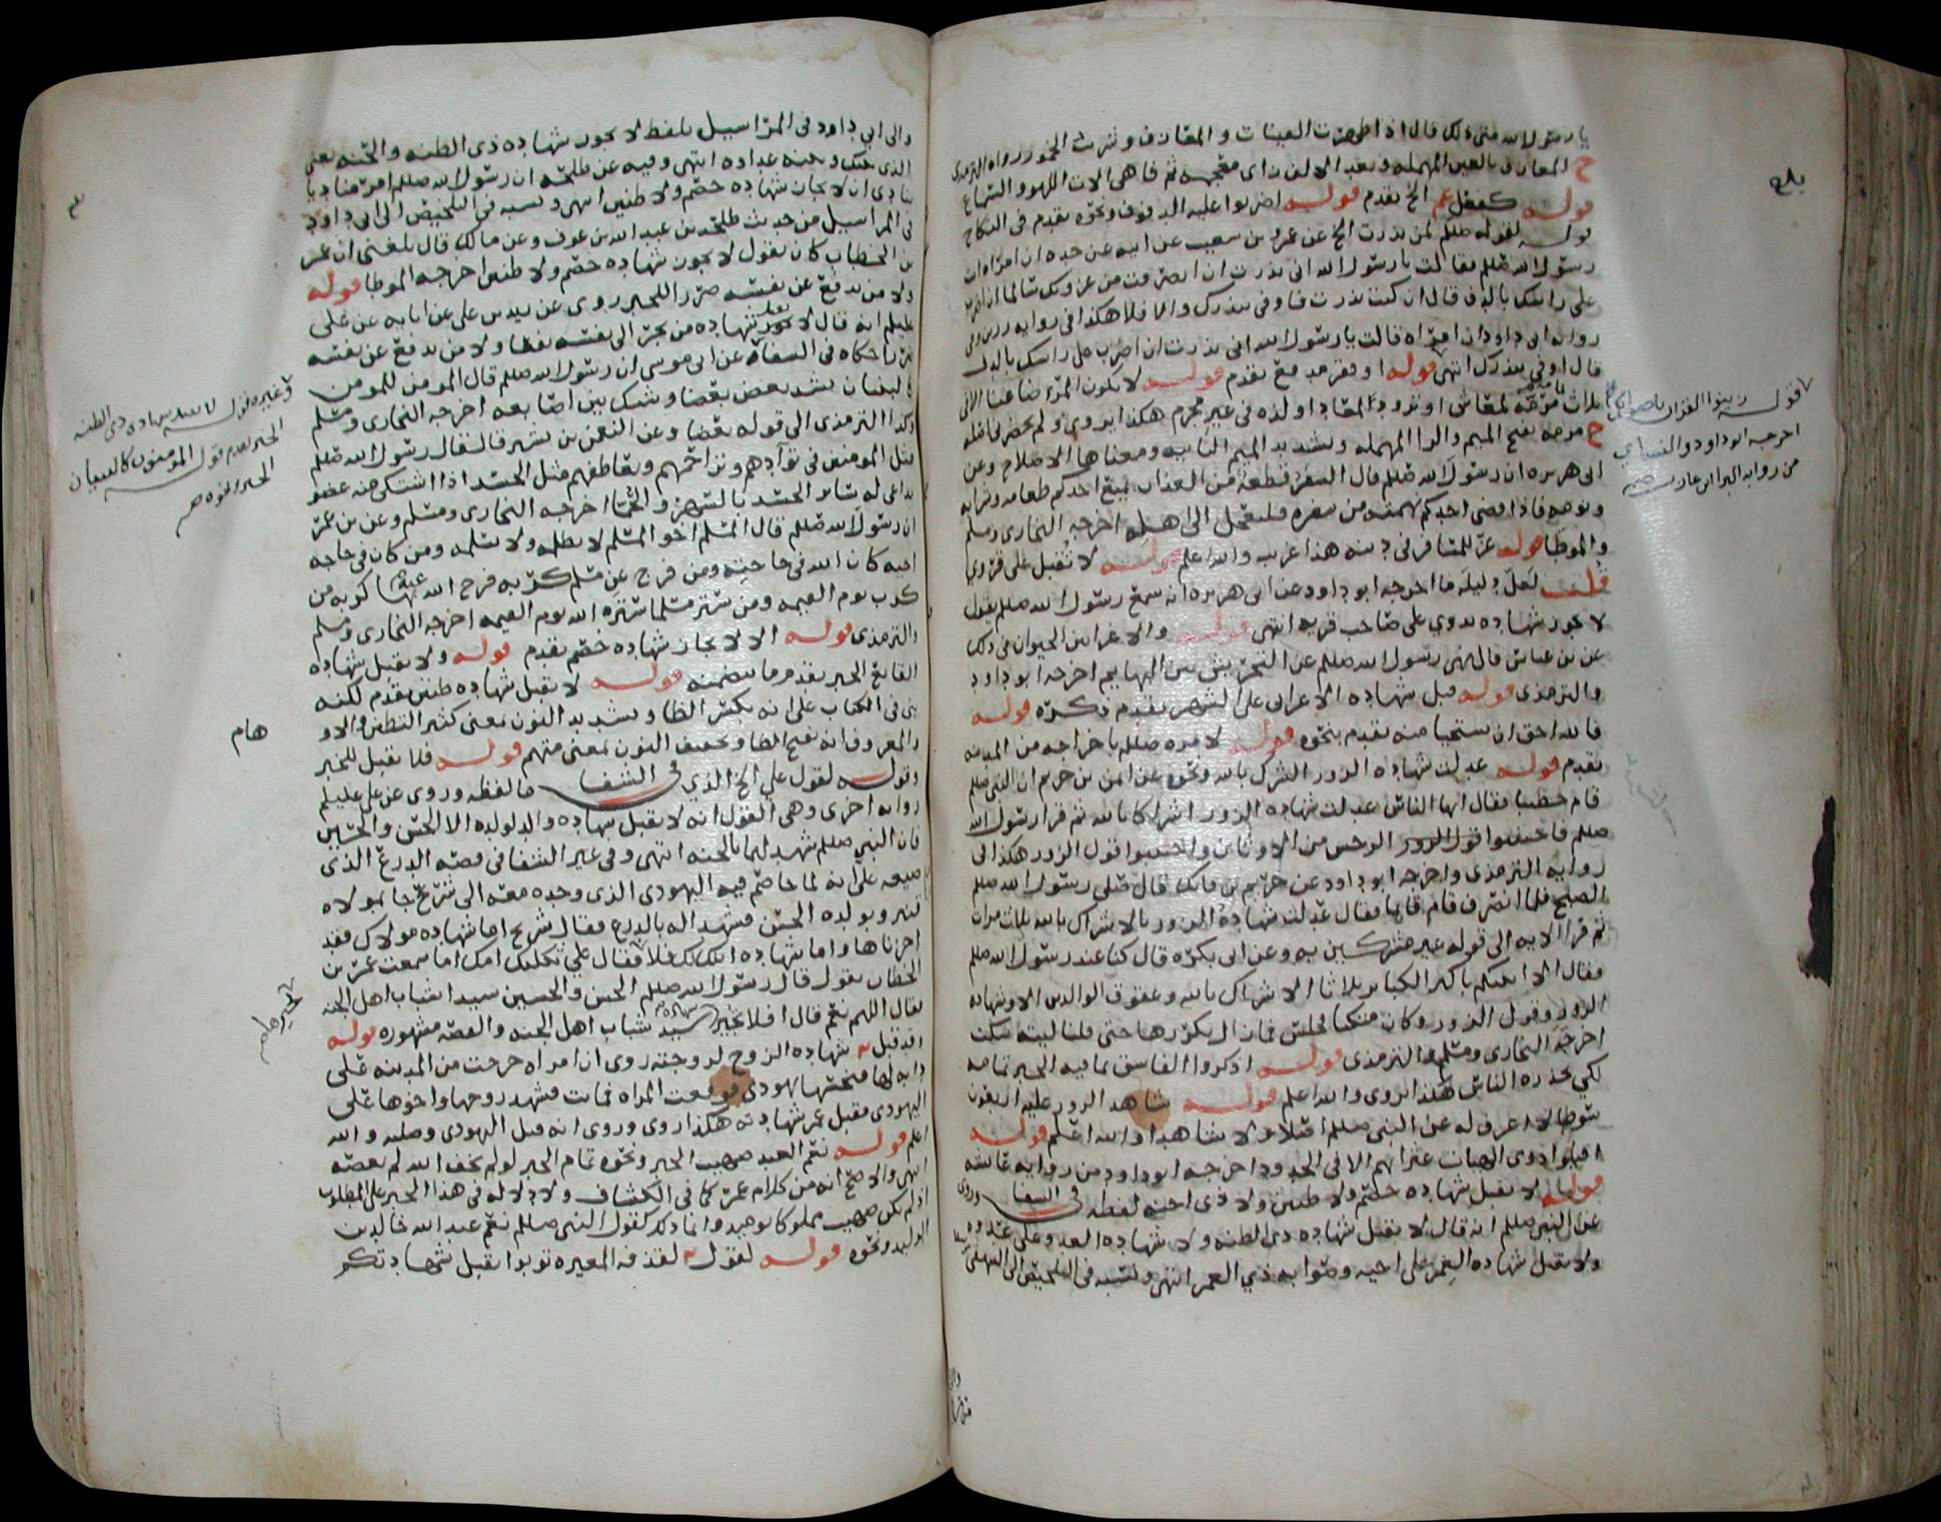 يا رسول الله متى ذلك قال اذا ظهرت القينات و المعازف و شربت الخمور رواه الترمذي
ح المعازف بالعين المهمله وبعد الالف زاى معجمه ثم فا هى الات اللهو
قوله كفعل عم الخ تقدم قوله اضربوا عليه الدفوف ونحوه تقدم فى النكاح
قوله لقوله صللم لمن نذرت الخ عن عمرو بن سعيب عن ابيه عن جده ان امراه اتت
رسول الله صللم فقالت يا رسول الله انى نذرت ان انصرفت من غزوتك سالما ان اضرب
على راسك بالدف قال ان كنت نذرت فاوفى بنذرك والا فلا هكذا فى روايه رزين وفى
روايه ابى داود ان امراه قالت يا رسول الله انى نذرت ان اضرب على راسك بالدف
قال اوفى بنذرك انتهى قوله او فقر مدقع تقدم قوله لا يكون المرء ضاعنا الا فى
ثلاث مرمه لمعاش او تزود لمعاد او لذه فى غير محرم هكذا يروى ولم يحضر
ح مرمه بفتح الميم والرا المهمله وتشديد الميم الثانيه ومعناها الاصلاح وعن
ابى هريره ان رسول الله صللم قال السفر قطعة من العذاب يمنع احدكم طعامه وشرابه
ونومه فاذا قضى احدكم نهمته من سفره فليعجل الى اهله اخرجه البخارى ومسلم
والموطا قوله عز للمسافر فى دينه هذا غريب والله اعلم قوله لا تقبل على قروي
قلت لعل دليله ما اخرجه ابو داود عن ابى هريره انه سمع رسول الله صللم يقول
لا تجوز شهاده بدوي على صاحب قريه انتهى قوله والاغرا بين الحيوان فى ذلك
عن بن عباس قال نهى رسول الله صللم عن التحريش بين البهايم اخرجه ابو داود
والترمذى قوله قبل شهاده الاعرابى على الشهر تقدم ذكره قوله
فالله احق ان يستحيا منه تقدم بنحوه قوله لامره صللم باخراجه من المدينه
تقدم قوله عدلت شهاده الزور الشرك بالله ونحوه عن ايمن بن خريم ان النبى صللم
قام خطيبا فقال ايها الناس عدلت شهاده الزور اشراكا بالله ثم قرا رسول الله
صللم فاجتنبوا الرجس من الاوثان واجتنبوا قول الزور هكذا فى
روايه الترمذى واخرجه ابو داود عن خريم بن فاتك قال صلى رسول الله صللم
الصبح فلما انصرف قام قايما فقال عدلت شهادة الزور بالاشراك بالله ثلاث مرات
ثم قرا الايه الى قوله غير مشركين به وعن ابى بكره قال كنا عند رسول الله صللم
فقال الا انبئكم باكبر الكباير ثلاثا الاشراك بالله وعقوق الوالدين الا وشهاده
الزور وقول الزور وكان متكيا فجلس فما زال يكررها حتى قلنا ليته سكت
اخرجه البخارى ومسلم والترمذى قوله اذكروا الفاسق بما فيه الخبر تمامه
لكي يحذره الناس هكذا يروى والله اعلم قوله شاهد الزور عليه
لا اعرف له عن النبى صللم اصلا ولا شاهدا والله اعلم قوله
اقيلوا ذوى الهيات عثراتهم الا فى الحدود اخرجه ابو داود من روايه عائشه
قوله لا تقبل شهاده خصم ولا ظنين ولا ذى احنه لفظه فى الشفا وروى
عن النبى صللم انه قال لا تقبل شهاده ذى الظنه ولا شهاده العدو على عدوه
ولا تقبل شهاده الغمر على اخيه وصوابه ذي الغمر انتهى ونسبه فى التلخيص الى البيهقى
بلغ
قوله زينوا القران باصواتكم
اخرجه ابو داود والنسايي
من روايه البرا بن عازب
والى ابى داود فى المراسيل بلفظ لا تجوز شهاده ذى الظنه والحنه يعنى
الذى بينك وبينه عداوه انتهى وفيه عن طلحه ان رسول الله صللم امر مناديا
ينادى ان لا تجاز شهاده خصم ولا ظنين انتهى ونسبه فى التلخيص الى ابى داود
فى المراسيل من حديث طلحه بن عبد الله بن عوف وعن مالك قال بلغنى ان عمر
بن الخطاب كان يقول لا تجوز شهاده خصم ولا ظنين اخرجه الموطا قوله
ولا من يدفع عن نفسه ضررا للخبر روى عن زيد بن على عن ابايه عن على
عليلم انه قال لا تجوز شهاده من يجر الى نفسه نفعا ولا من يدفع عن نفسه
ضررا حكاه فى الشفا عن ابى موسى ان رسول الله صللم قال المومن للمومن
كالبنيان يشد بعضه بعضا وشبك بين اصابعه اخرجه البخارى ومسلم
وكذا الترمذى الى قوله بعضا وعن النعمن بن بشير قال قال رسول الله صللم
مثل المومنين فى توآدهم وتراحمهم وتعاطفهم مثل الجسد اذا اشتكى منه عضو
تداعى له سائر الجسد بالسهر والحما اخرجه البخارى ومسلم وعن بن عمر
ان رسول الله صللم قال المسلم اخو المسلم لا يظلمه ولا يسلمه ومن كان فى حاجه
اخيه كان الله فى حاجته ومن فرج عن مسلم كربه فرج الله عنه بها كربه من
كرب يوم القيمه ومن ستر مسلما ستره الله يوم القيمه اخرجه البخارى ومسلم
والترمذى قوله الا لا تجاز شهاده خصم تقدم قوله ولا تقبل شهاده
القانع الخبر تقدم ما تضمنه قوله لا تقبل شهاده ظنين تقدم لكنه
بنى فى الكتاب على انه بكسر الظا وتشديد النون بمعنى كثير التظنن
والمعروف انه بفتح الظا وتخفيف النون بمعنى متهم قوله فلا تقبل للخبر
وقوله لقول علي الخ الذي فى الشفا ما لفظه وروى عن على عليلم
روايه اخرى وهى القول انه لا تقبل شهاده والد لولده الا الحسن والحسين
فان النبى صللم شهد لهما بالجنه انتهى وفى غير الشفا فى قصه الدرع الذى
على انه لما خاصم فيه اليهودى الذى وجده معه الى شريح جا بمولاه
قنبر وبولده الحسن فشهدا له بالدرع فقال شريح اما شهاده مولاك فقد
اجزناها واما شهاده ابنك لك فلا فقال علي ثكلتك امك اما سمعت عمر بن
الخطاب يقول قال رسول الله صللم الحسن والحسين سيدا شباب اهل الجنه
فقال اللهم نعم قال افلا تجيز شهاده سيد شباب اهل الجنه والقصه مشهوره قوله
وقد قبل شهاده الزوج لزوجته روى ان امراه خرجت من المدينه على
دابه لها فنخسها يهودى فوقعت المراه فماتت فشهد زوجها واخوها على
اليهودى فقبل عمر شهادته هكذا روى وروى انه قتل اليهودى وصلبه والله
اعلم قوله نعم العبد صهيب الخبر ونحوه تمام الخبر لو لم يخف الله لم يعصه
انتهى والاصح انه من كلام عمر كما فى الكشاف ولا دلاله فى هذا الخبر على المطلوب
اذ لم يكن صهيب مملوكا يوميذ وانما ذكر كقول النبى صللم نعم عبد الله خالد بن
الوليد ونحوه قوله لقول لقذفه المغيره توبوا تقبل شهادتكم
وغيره قوله لا تقبل شهاده ذى الظنه
الخبر تقدم قوله المومنون كالبنيان
الخبر ونحوه
هام